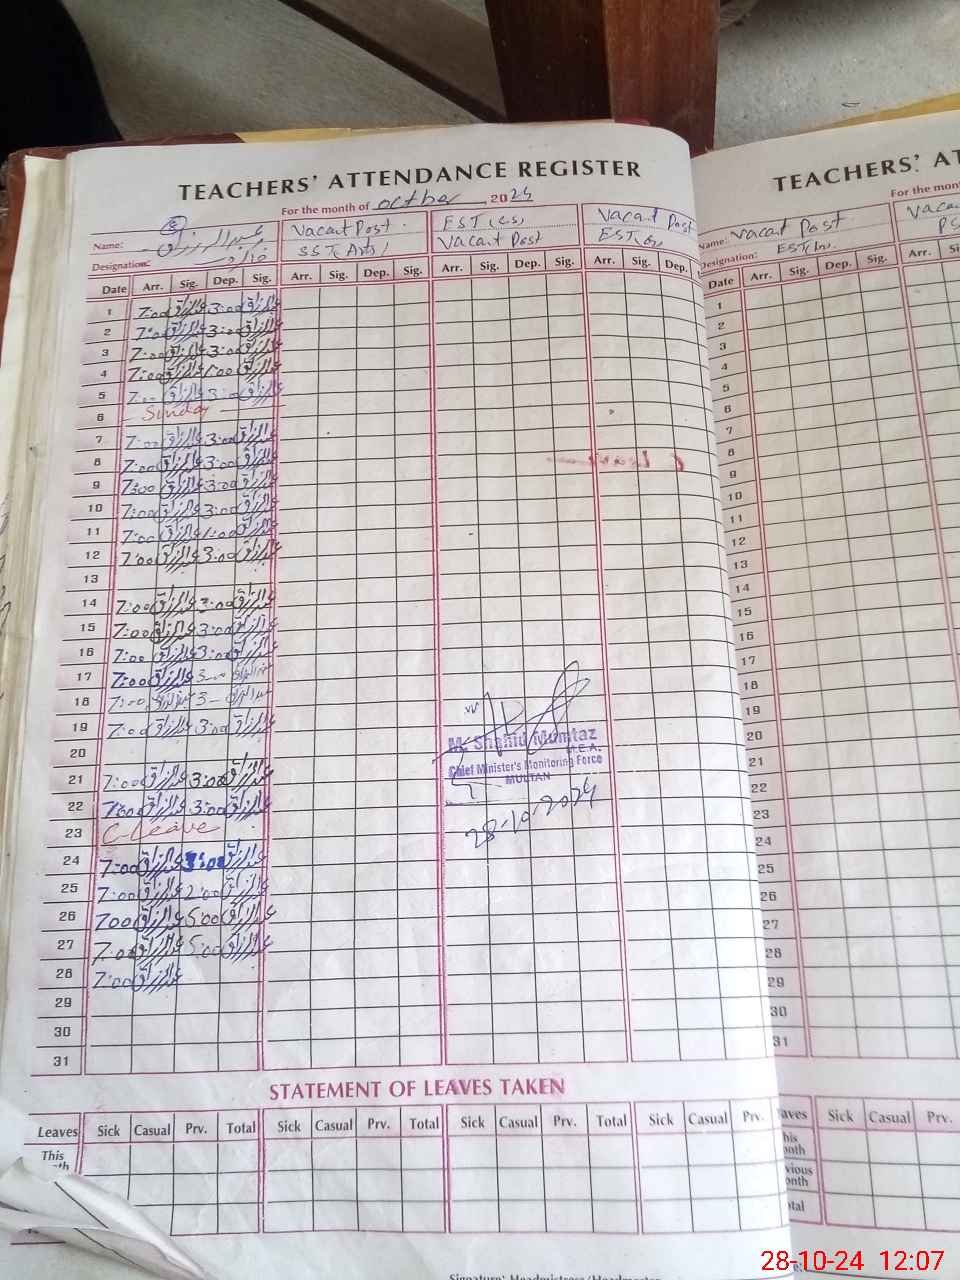 TEACHERS' ATTENDANCE REGISTER
For the month of octber 2024
Name: عبدالرزاق
Vacant Post
EST(cs)
Vacant Post
Designation:
SST(Arts)
Vacant Post
EST
Date Arr. Sig. Dep. Sig. Arr. Sig. Dep. Sig. Arr. Sig. Dep. Sig. Arr. Sig. Dep.
1 7:00 عبدالرزاق 3:00 عبدالرزاق
2 7:00 عبدالرزاق 3:00 عبدالرزاق
3 7:00 عبدالرزاق 3:00 عبدالرزاق
4 7:00 عبدالرزاق 1:00 عبدالرزاق
5 7:00 عبدالرزاق 3:00 عبدالرزاق
6 Sunday
7 7:00 عبدالرزاق 3:00 عبدالرزاق
8 7:00 عبدالرزاق 3:00 عبدالرزاق
9 7:00 عبدالرزاق 3:00 عبدالرزاق
10 7:00 عبدالرزاق 3:00 عبدالرزاق
11 7:00 عبدالرزاق 1:00 عبدالرزاق
12 7:00 عبدالرزاق 3:00 عبدالرزاق
13
14 7:00 عبدالرزاق 3:00 عبدالرزاق
15 7:00 عبدالرزاق 3:00 عبدالرزاق
16 7:00 عبدالرزاق 3:00 عبدالرزاق
17 7:00 عبدالرزاق 3-00 عبدالرزاق
18 7:00 عبدالرزاق 3- عبدالرزاق
19 7:00 عبدالرزاق 3:00 عبدالرزاق
20
21 7:00 عبدالرزاق 3:00 عبدالرزاق
22 7:00 عبدالرزاق 3:00 عبدالرزاق
23 C leave
24 7:00 عبدالرزاق 3:00 عبدالرزاق
25 7:00 عبدالرزاق 2:00 عبدالرزاق
26 700 عبدالرزاق 5:00 عبدالرزاق
27 7:00 عبدالرزاق 5:00 عبدالرزاق
28 7:00 عبدالرزاق
29
30
31
M. Shahid Mumtaz
M.E.A.
Chief Minister's Monitoring Force
MULTAN
28-10-2024
STATEMENT OF LEAVES TAKEN
Leaves Sick Casual Prv. Total Sick Casual Prv. Total Sick Casual Prv. Total Sick Casual Prv.
This
TEACHERS' AT
For the mon
Name: Vacant Post
Designation: EST
Date Arr. Sig. Dep. Sig. Arr. Sig.
1
2
3
4
5
6
7
8
9
10
11
12
13
14
15
16
17
18
19
20
21
22
23
24
25
26
27
28
29
30
31
aves Sick Casual Prv. Total Sick Casual Prv.
his
onth
vious
onth
tal
28-10-24 12:07